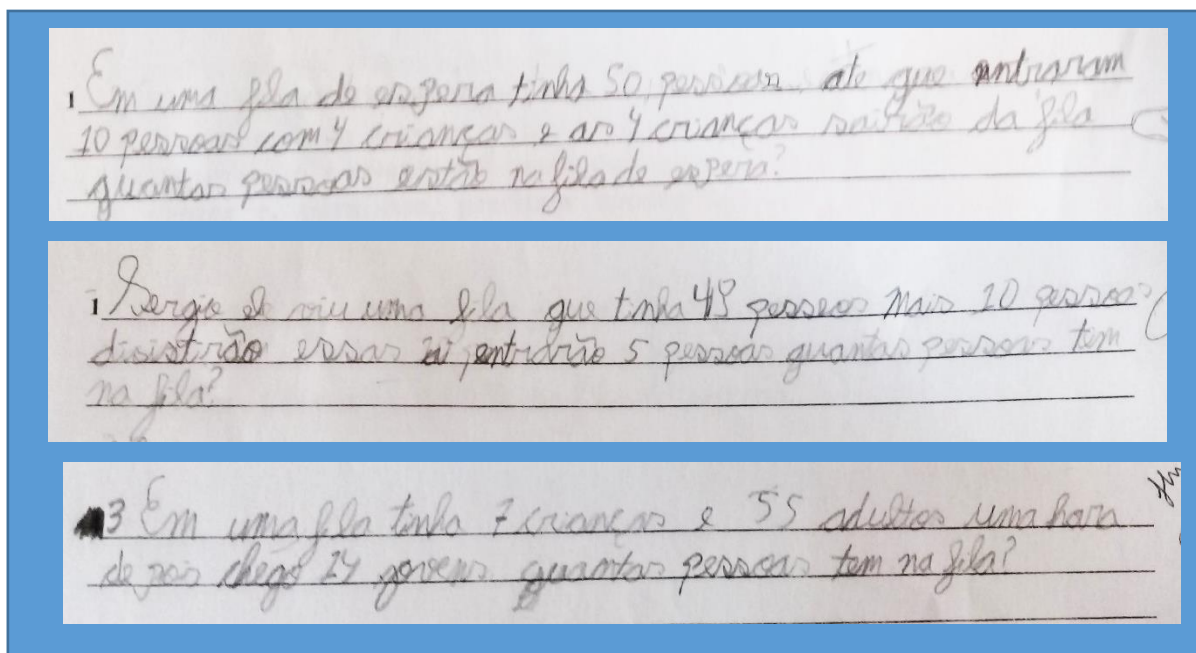 1 Em uma fila de espera tinha 50 pessoas, ate que entraram
10 pessoas com 4 crianças e as 4 crianças sairão da fila
quantas pessoas estão na fila de espera?
1 Sergio viu uma fila que tinha 49 pessoas mais 10 pessoas
disistirão essas entrarão 5 pessoas quantas pessoas tem
na fila?
3 Em uma fila tinha 7 crianças e 55 adultos uma hora
de pois chego 24 govens quantas pessoas tem na fila?